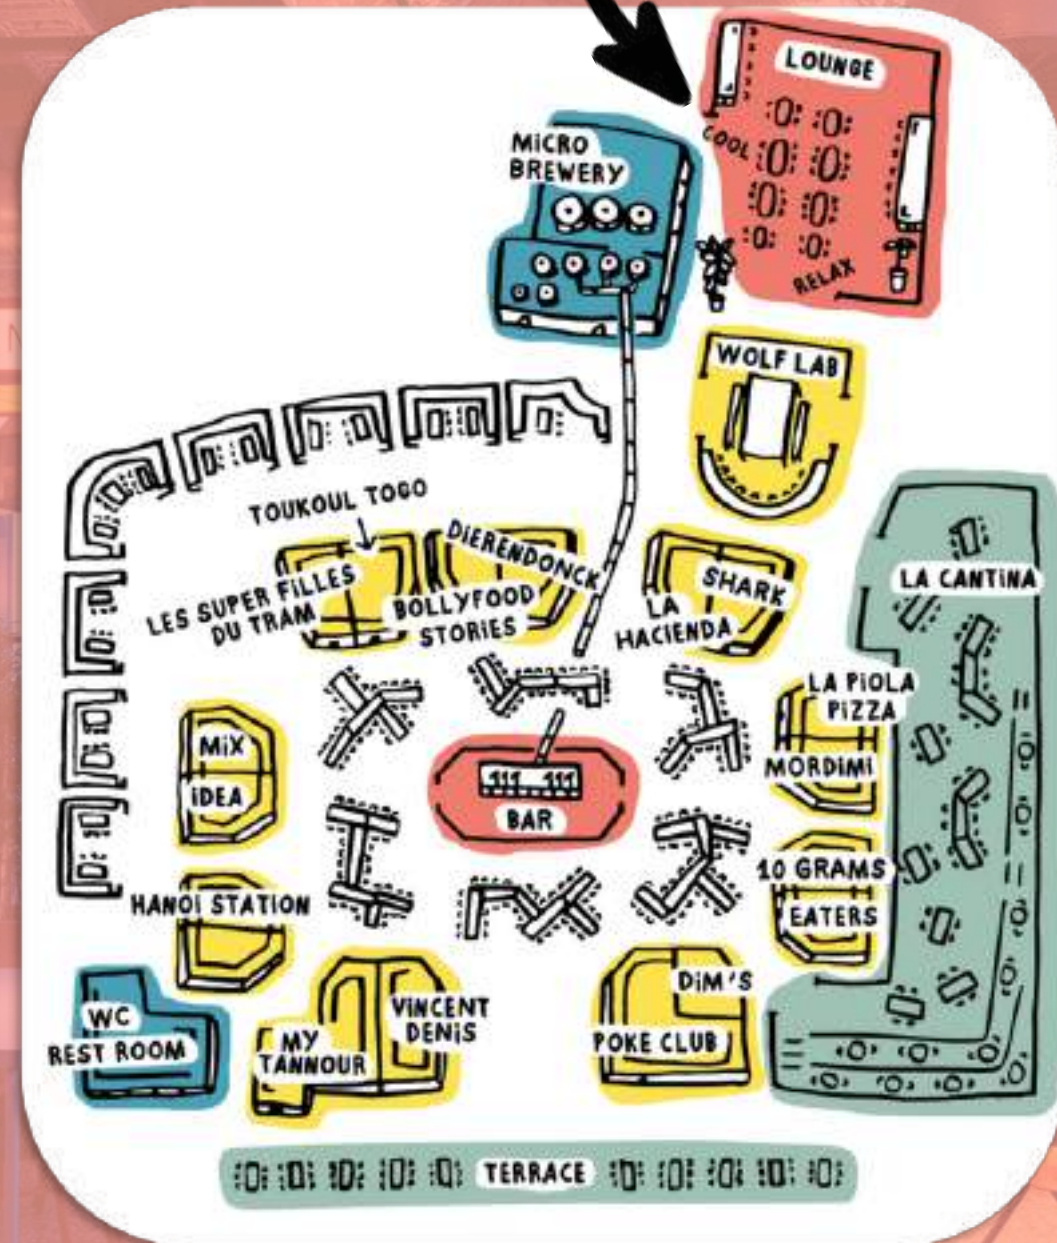 LOUNGE
COOL
RELAX
MiCRO
BREWERY
WOLF LAB
TOUKOUL TOGO
DIERENDONCK
LES SUPER FILLES
DU TRAM
BOLLYFOOD
STORiES
SHARK
LA
HACIENDA
LA CANTiNA
LA PiOLA
PiZZA
MORDiMi
MiX
iDEA
BAR
10 GRAMS
EATERS
HANOi STATiON
WC
REST ROOM
MY
TANNOUR
ViNCENT
DENiS
DiM'S
POKE CLUB
TERRACE